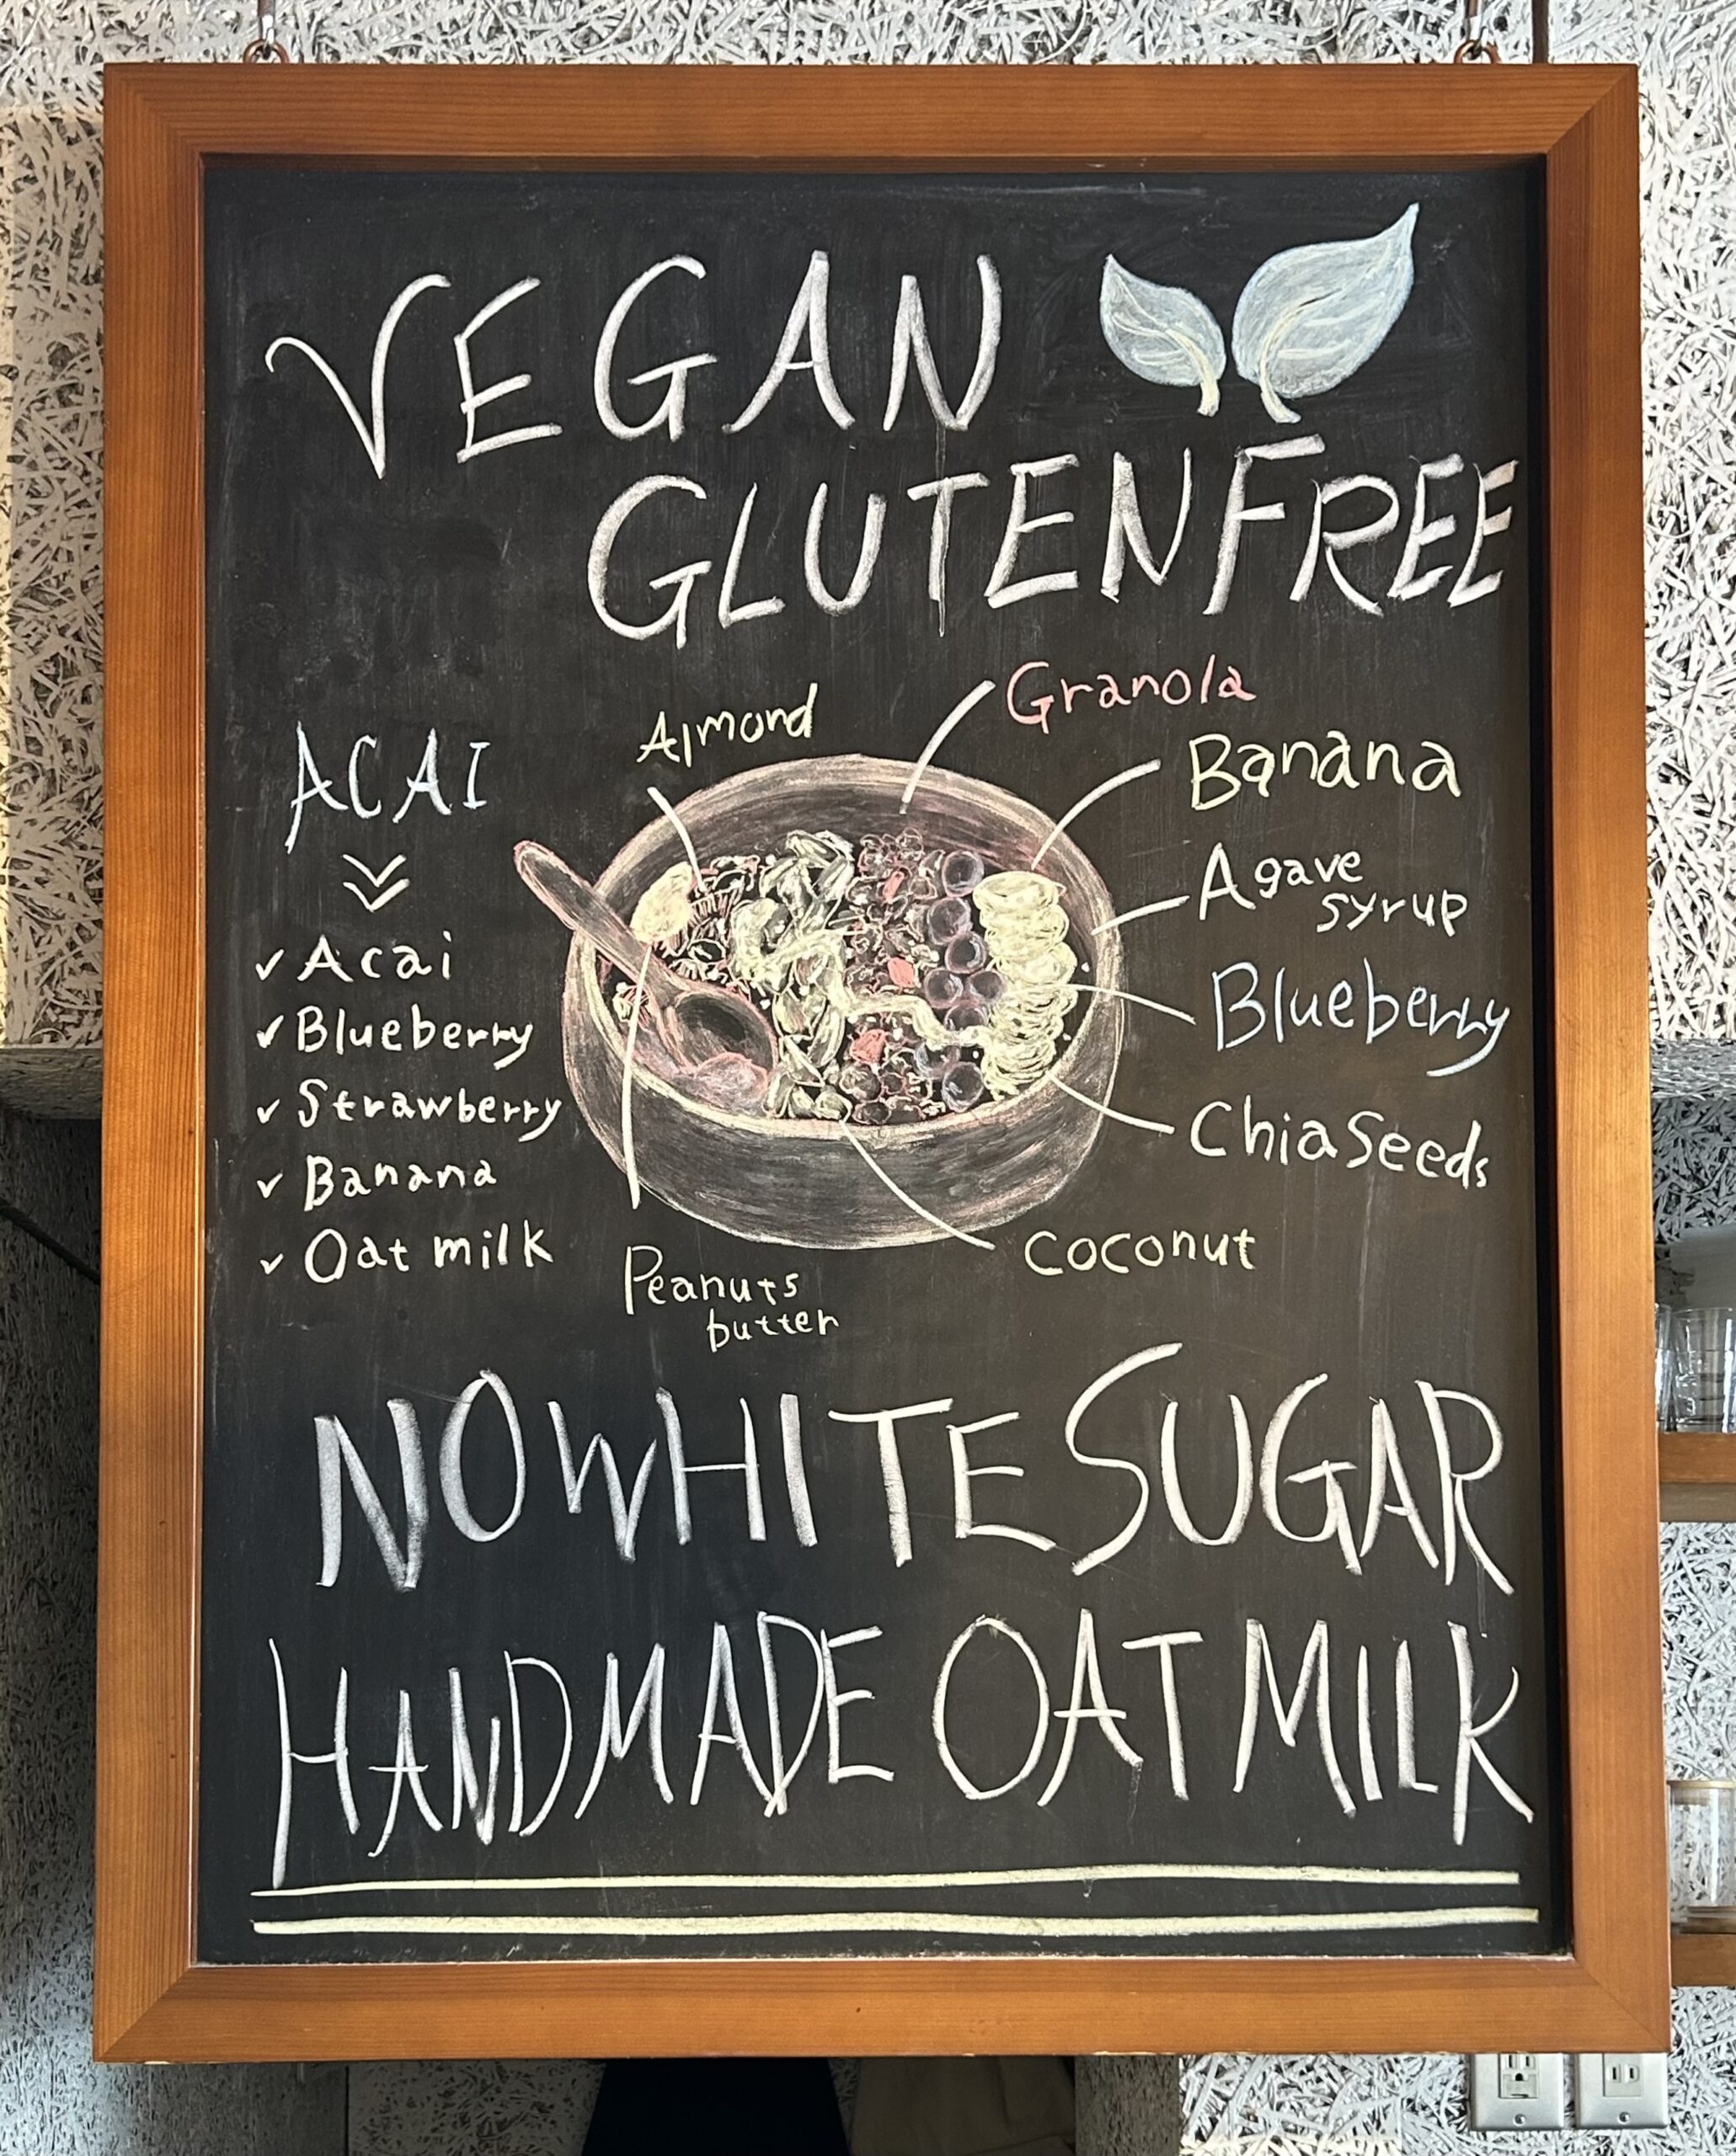 VEGAN
GLUTEN FREE
ACAI
✓ Acai
✓ Blueberry
✓ Strawberry
✓ Banana
✓ Oat milk
Almond
Granola
Banana
Agave
syrup
Blueberry
Chia Seeds
Coconut
Peanuts
butter
NO WHITE SUGAR
HANDMADE OAT MILK